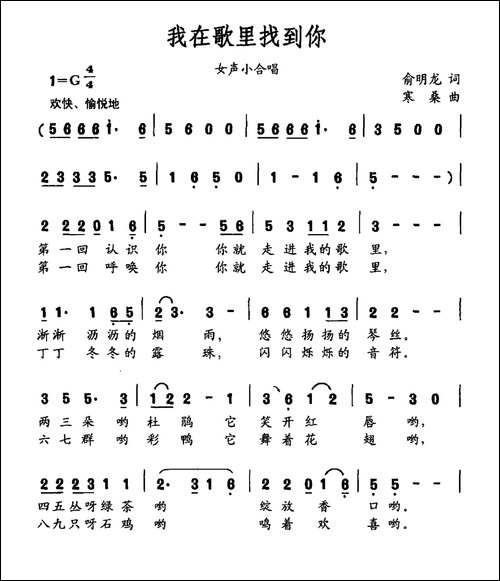 我在歌里找到你
女声小合唱
1=G 4/4
俞明龙 词
欢快、愉悦地
寒 桑 曲
( 5 6 6 6 1· 6 | 5 6 0 0 | 5 6 6 6 1· 6 | 3 5 0 0 |
2 3 3 3 5· 5 | 1 6 5 0 | 1 - 1 6 | 5 - - - )
2 2 2 0 1 6 | 5 - - 5 6 | 5 3 1 1 2 | 3 - - - |
第 一 回 认 识 你 你 就 走 进 我 的 歌 里,
第 一 回 呼 唤 你 你 就 走 进 我 的 歌 里,
1 1· 1 6 5 | 2 3· 3 - | 6 6 1 1 3 | 2 2 - - |
渐 渐 沥 沥 的 烟 雨, 悠 悠 扬 扬 的 琴 丝。
丁 丁 冬 冬 的 露 珠, 闪 闪 烁 烁 的 音 符。
3 5 5· 3 | 1 2 2 - 1 | 3· 6 1 2 | 5 - 3 0 |
两 三 朵 哟 杜 鹃 它 笑 开 红 唇 哟,
六 七 群 哟 彩 鸭 它 舞 着 花 翅 哟,
2 2 2 3 1 | 2· 3 1 6 | 2 2 1 6 | 5 5 - - |
四 五 丛 呀 绿 茶 哟 绽 放 香 口 哟。
八 九 只 呀 石 鸡 哟 鸣 着 欢 喜 哟。